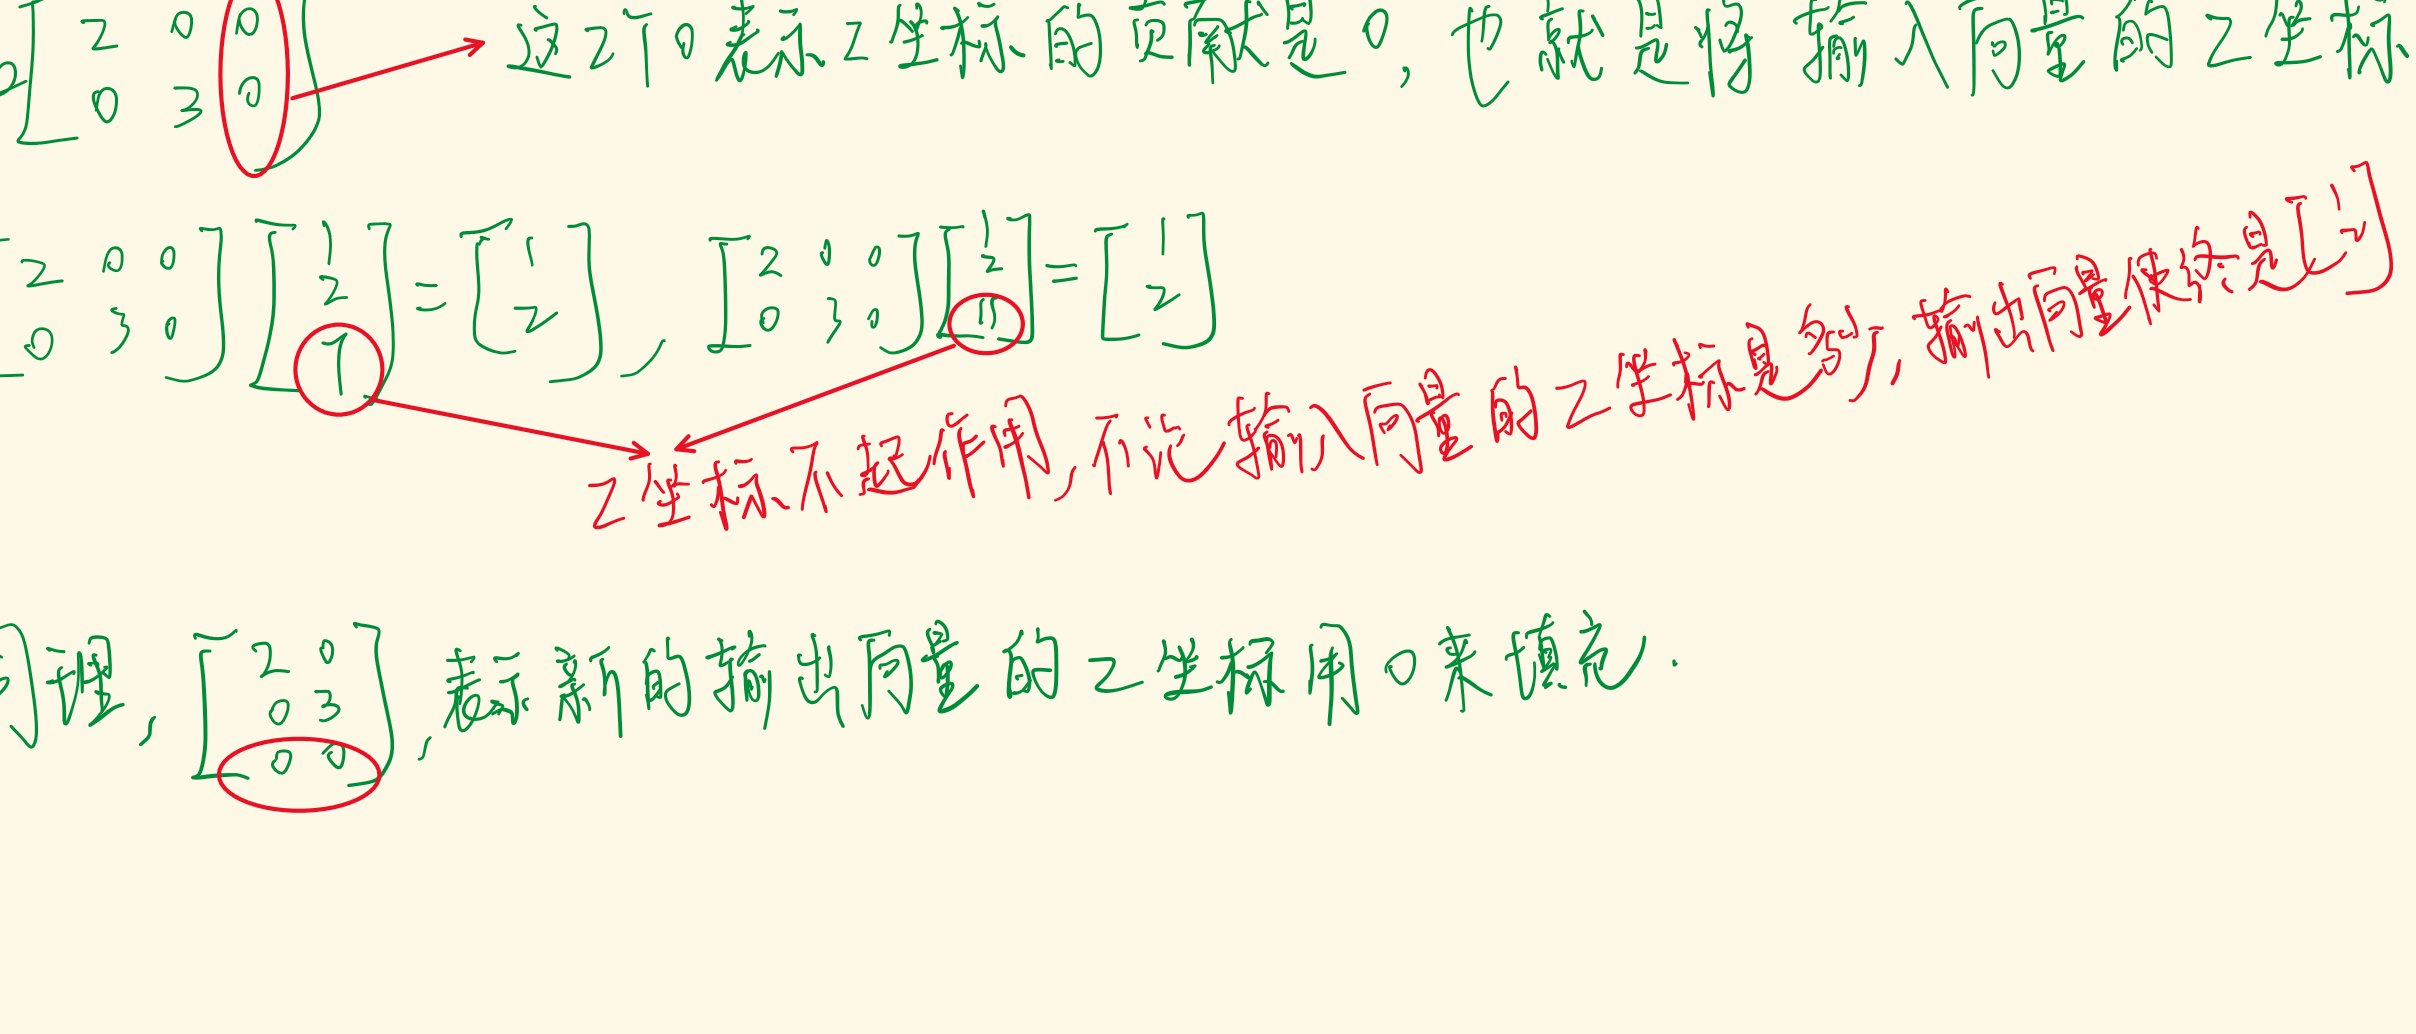 [2 0 0; 0 3 0] 这2个0表示Z坐标的贡献是0,也就是将输入向量的Z坐标
[2 0 0; 0 3 0][1; 2; 7]=[1; 2], [2 0 0; 0 3 0][1; 2; 11]=[1; 2]
Z坐标不起作用,不论输入向量的Z坐标是多少,输出向量使终是[1; 2]
同理,[2 0; 0 3; 0 0],表示新的输出向量的Z坐标用0来填充.